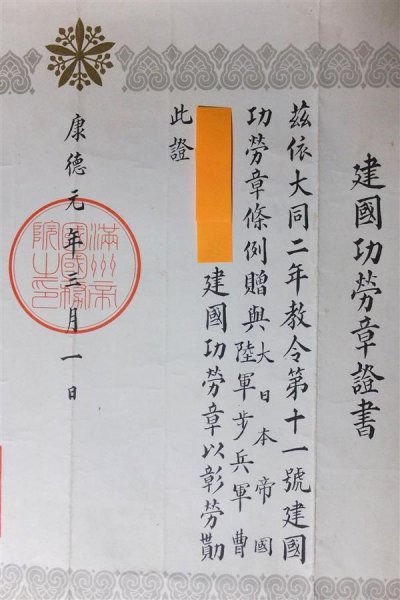 建國功勞章證書
茲依大同二年教令第十一號建國
功勞章條例贈與大日本帝國
陸軍步兵軍曹
建國功勞章以彰勞勩
此證
康德元年三月一日
滿洲帝
國國務
院之印